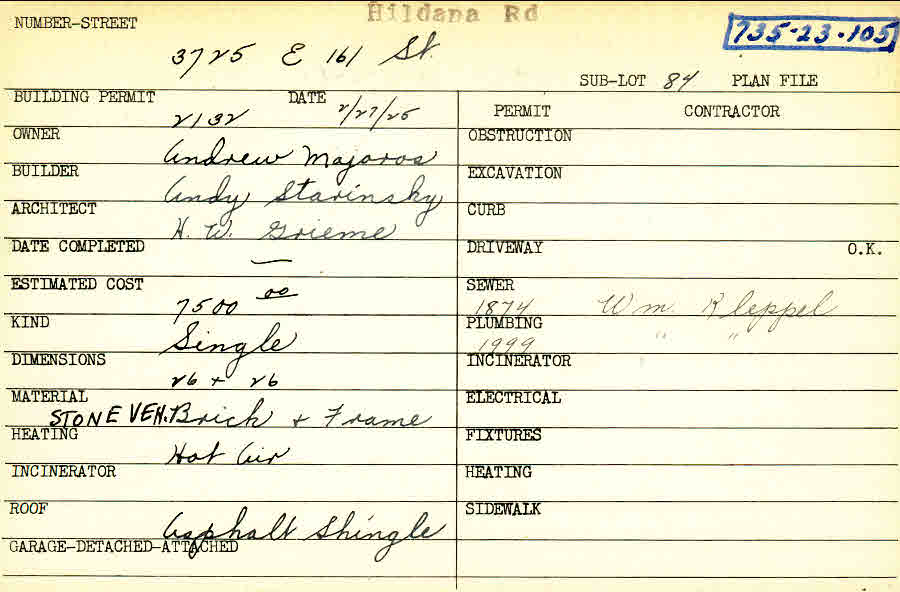 Hildana Rd
NUMBER-STREET
735-23-105
3725 E 161 St.
SUB-LOT 84 PLAN FILE
BUILDING PERMIT DATE
2132 2/27/25
PERMIT CONTRACTOR
OWNER
Andrew Majoros
OBSTRUCTION
BUILDER
Andy Starinsky
EXCAVATION
ARCHITECT
H. W. Grieme
CURB
DATE COMPLETED
—
DRIVEWAY O.K.
ESTIMATED COST
7500 00
SEWER
1874 Wm. Kleppel
KIND
Single
PLUMBING
1999 " "
DIMENSIONS
26 + 26
INCINERATOR
MATERIAL
STONE VEN. Brick + Frame
ELECTRICAL
HEATING
Hot Air
FIXTURES
INCINERATOR
HEATING
ROOF
Asphalt Shingle
SIDEWALK
GARAGE-DETACHED-ATTACHED